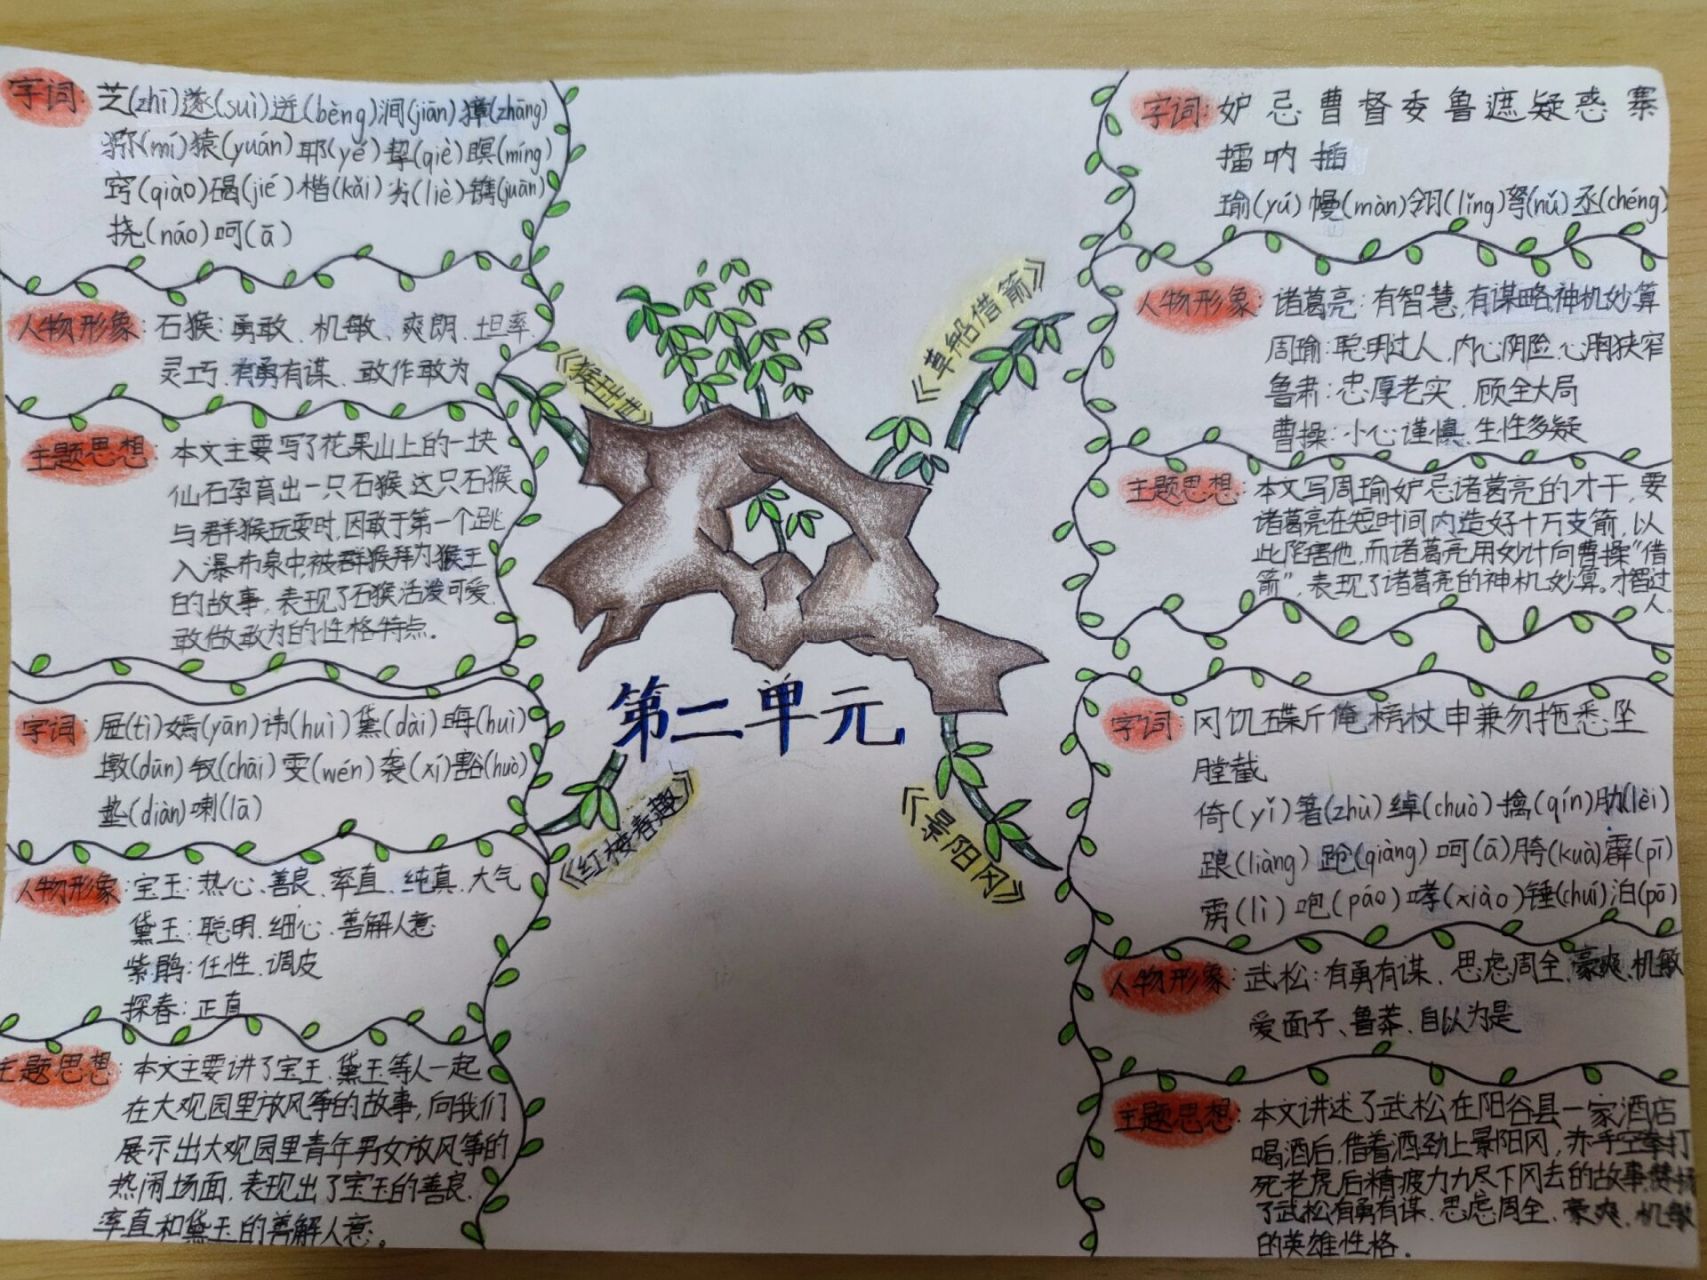 字词: 芝(zhī)遂(suì)迸(bèng)涧(jiān)獐(zhāng)
猕(mí)猿(yuán)耶(yé)挈(qiè)瞑(míng)
窍(qiào)碣(jié)楷(kǎi)劣(liè)镌(juān)
挠(náo)呵(ā)
人物形象: 石猴: 勇敢、机敏、爽朗、坦率、
灵巧、有勇有谋、敢作敢为
主题思想: 本文主要写了花果山上的一块
仙石孕育出一只石猴,这只石猴
与群猴玩耍时,因敢于第一个跳
入瀑布泉中,被群猴拜为猴王
的故事,表现了石猴活泼可爱、
敢做敢为的性格特点。
字词: 屉(tì)嫣(yān)讳(huì)黛(dài)晦(huì)
墩(dūn)钗(chāi)雯(wén)袭(xí)豁(huò)
垫(diàn)喇(lā)
人物形象: 宝玉: 热心、善良、率直、纯真、大气
黛玉: 聪明、细心、善解人意
紫鹃: 任性、调皮
探春: 正直
主题思想: 本文主要讲了宝玉、黛玉等人一起
在大观园里放风筝的故事,向我们
展示出大观园里青年男女放风筝的
热闹场面,表现出了宝玉的善良、
率直和黛玉的善解人意。
《猴王出世》
《草船借箭》
第二单元
《红楼春趣》
《景阳冈》
字词: 妒 忌 曹 督 委 鲁 遮 疑 惑 寨
擂 呐 插
瑜(yú)幔(màn)翎(líng)弩(nǔ)丞(chéng)
人物形象: 诸葛亮: 有智慧,有谋略,神机妙算
周瑜: 聪明过人、内心阴险、心胸狭窄
鲁肃: 忠厚老实、顾全大局
曹操: 小心谨慎、生性多疑
主题思想: 本文写周瑜妒忌诸葛亮的才干,要
诸葛亮在短时间内造好十万支箭,以
此陷害他,而诸葛亮用妙计向曹操“借
箭”,表现了诸葛亮的神机妙算。才智过
人。
字词: 冈饥碟斤俺梢杖申兼勿拖悉坠
膛截
倚(yǐ)箸(zhù)绰(chuò)擒(qín)肋(lèi)
踉(liàng)跄(qiàng)呵(ā)胯(kuà)霹(pī)
雳(lì)咆(páo)哮(xiào)锤(chuí)泊(pō)
人物形象: 武松: 有勇有谋、思虑周全、豪爽、机敏
爱面子、鲁莽、自以为是
主题思想: 本文讲述了武松在阳谷县一家酒店
喝酒后,借着酒劲上景阳冈,赤手空拳打
死老虎后精疲力尽下冈去的故事,
了武松有勇有谋、思虑周全、豪爽、机敏
的英雄性格。